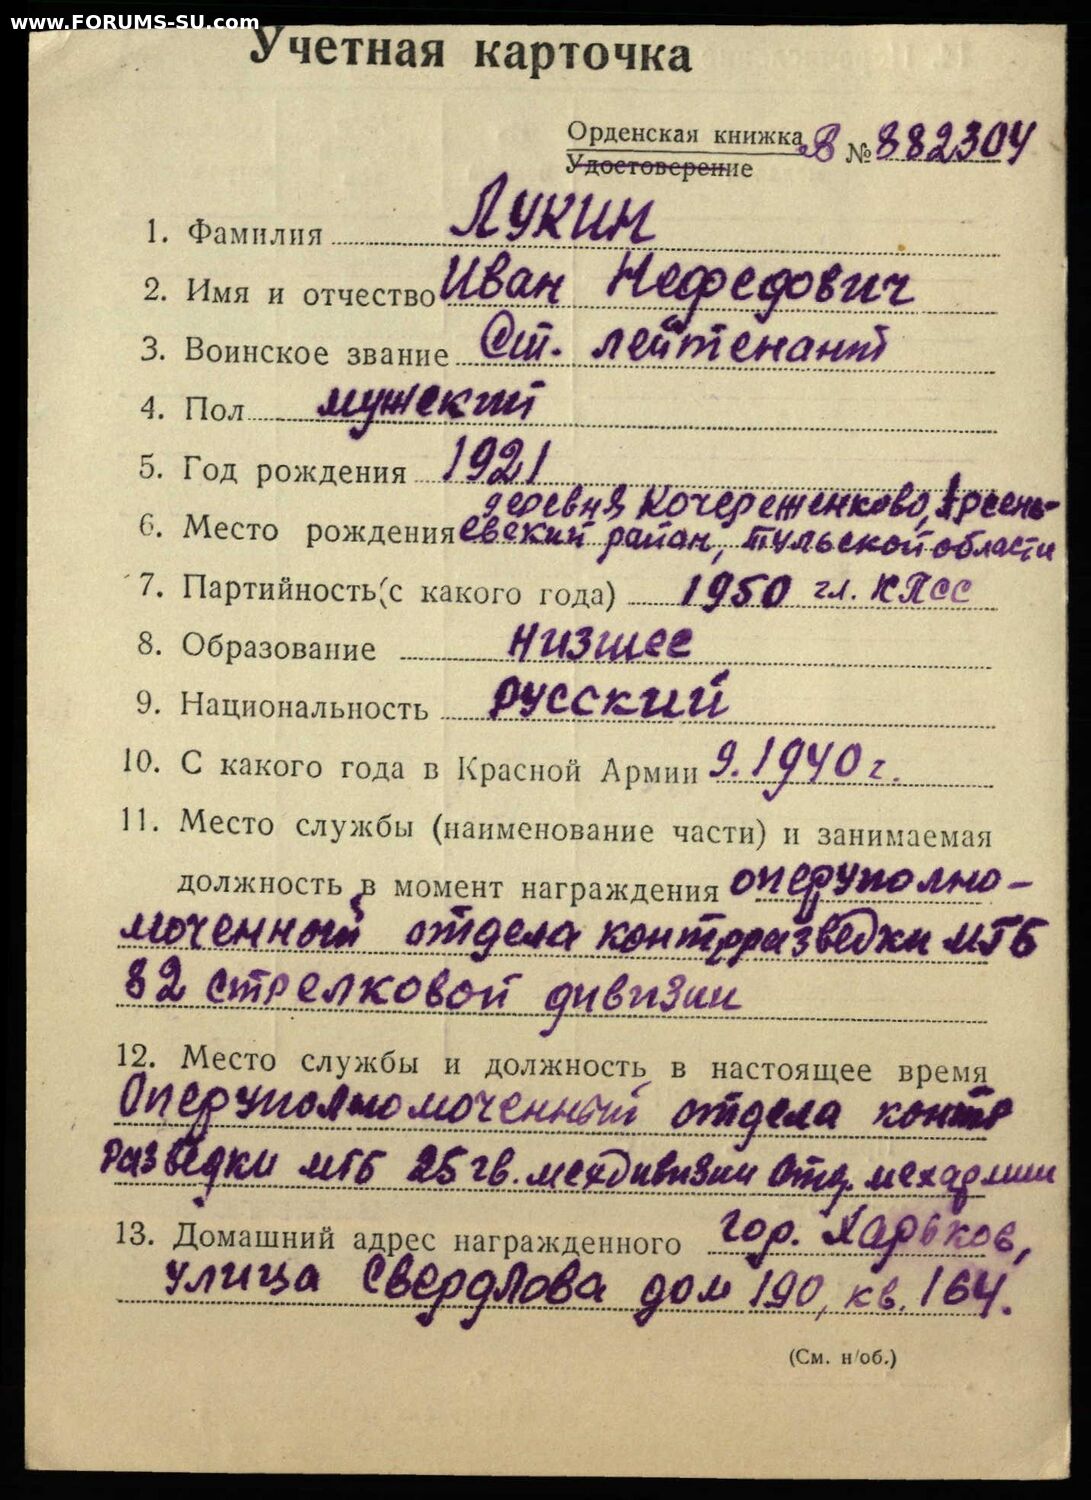 www.FORUMS-SU.com
Учетная карточка
Орденская книжка В № 882304
Удостоверение
1. Фамилия Лукин
2. Имя и отчество Иван Нефедович
3. Воинское звание Ст. лейтенант
4. Пол мужский
5. Год рождения 1921
деревня Кочереженково, Арсень-
6. Место рождения евский район, Тульской области
7. Партийность (с какого года) 1950 чл. КПСС
8. Образование низшее
9. Национальность русский
10. С какого года в Красной Армии 9.1940 г.
11. Место службы (наименование части) и занимаемая
должность в момент награждения оперуполно-
моченный отдела контрразведки МГБ
82 стрелковой дивизии
12. Место службы и должность в настоящее время
Оперуполномоченный отдела контр
разведки МГБ 25 гв. мехдивизии Отд. мехармии
13. Домашний адрес награжденного гор. Харьков,
улица Свердлова дом 190, кв. 164.
(См. н/об.)